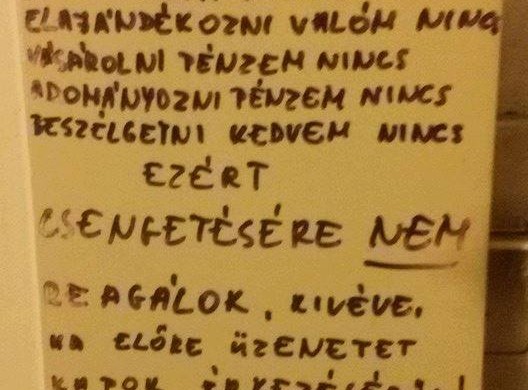 ELAJÁNDÉKOZNI VALÓM NINCS
VÁSÁROLNI PÉNZEM NINCS
ADOMÁNYOZNI PÉNZEM NINCS
BESZÉLGETNI KEDVEM NINCS
EZÉRT
CSENGETÉSÉRE NEM
REAGÁLOK, KIVÉVE,
HA ELŐRE ÜZENETET
KAPOK ÉRKEZÉSÉRŐL!